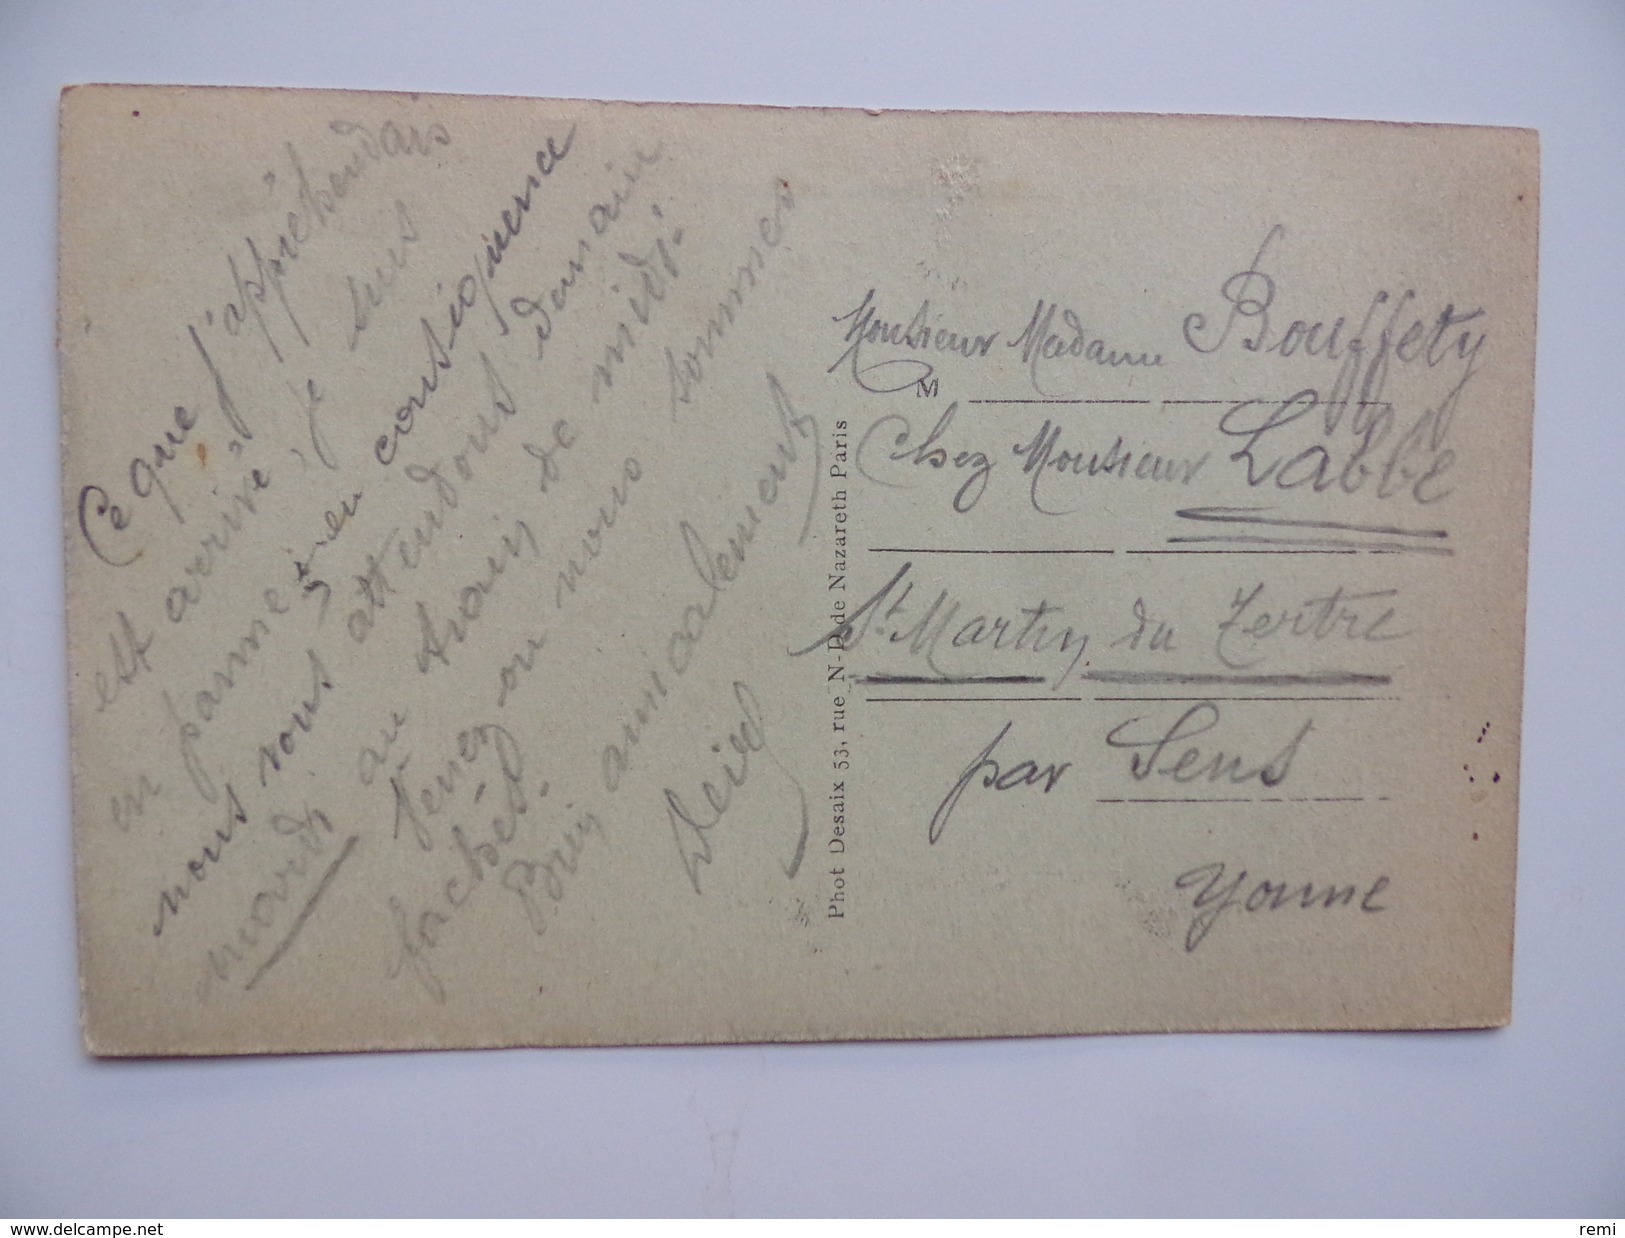 Ce que j'appréhendais
est arrivé, je suis
en panne, en conséquence
nous vous attendons demain
mardi au train de midi.
Venez ou nous sommes
fachés.
Bien amicalement
Phot Desaix 53, rue N-D de Nazareth Paris
Monsieur Madame Bouffety
M
Chez Monsieur Labbé
St Martin du Tertre
par Sens
Yonne
www.delcampe.net
remi